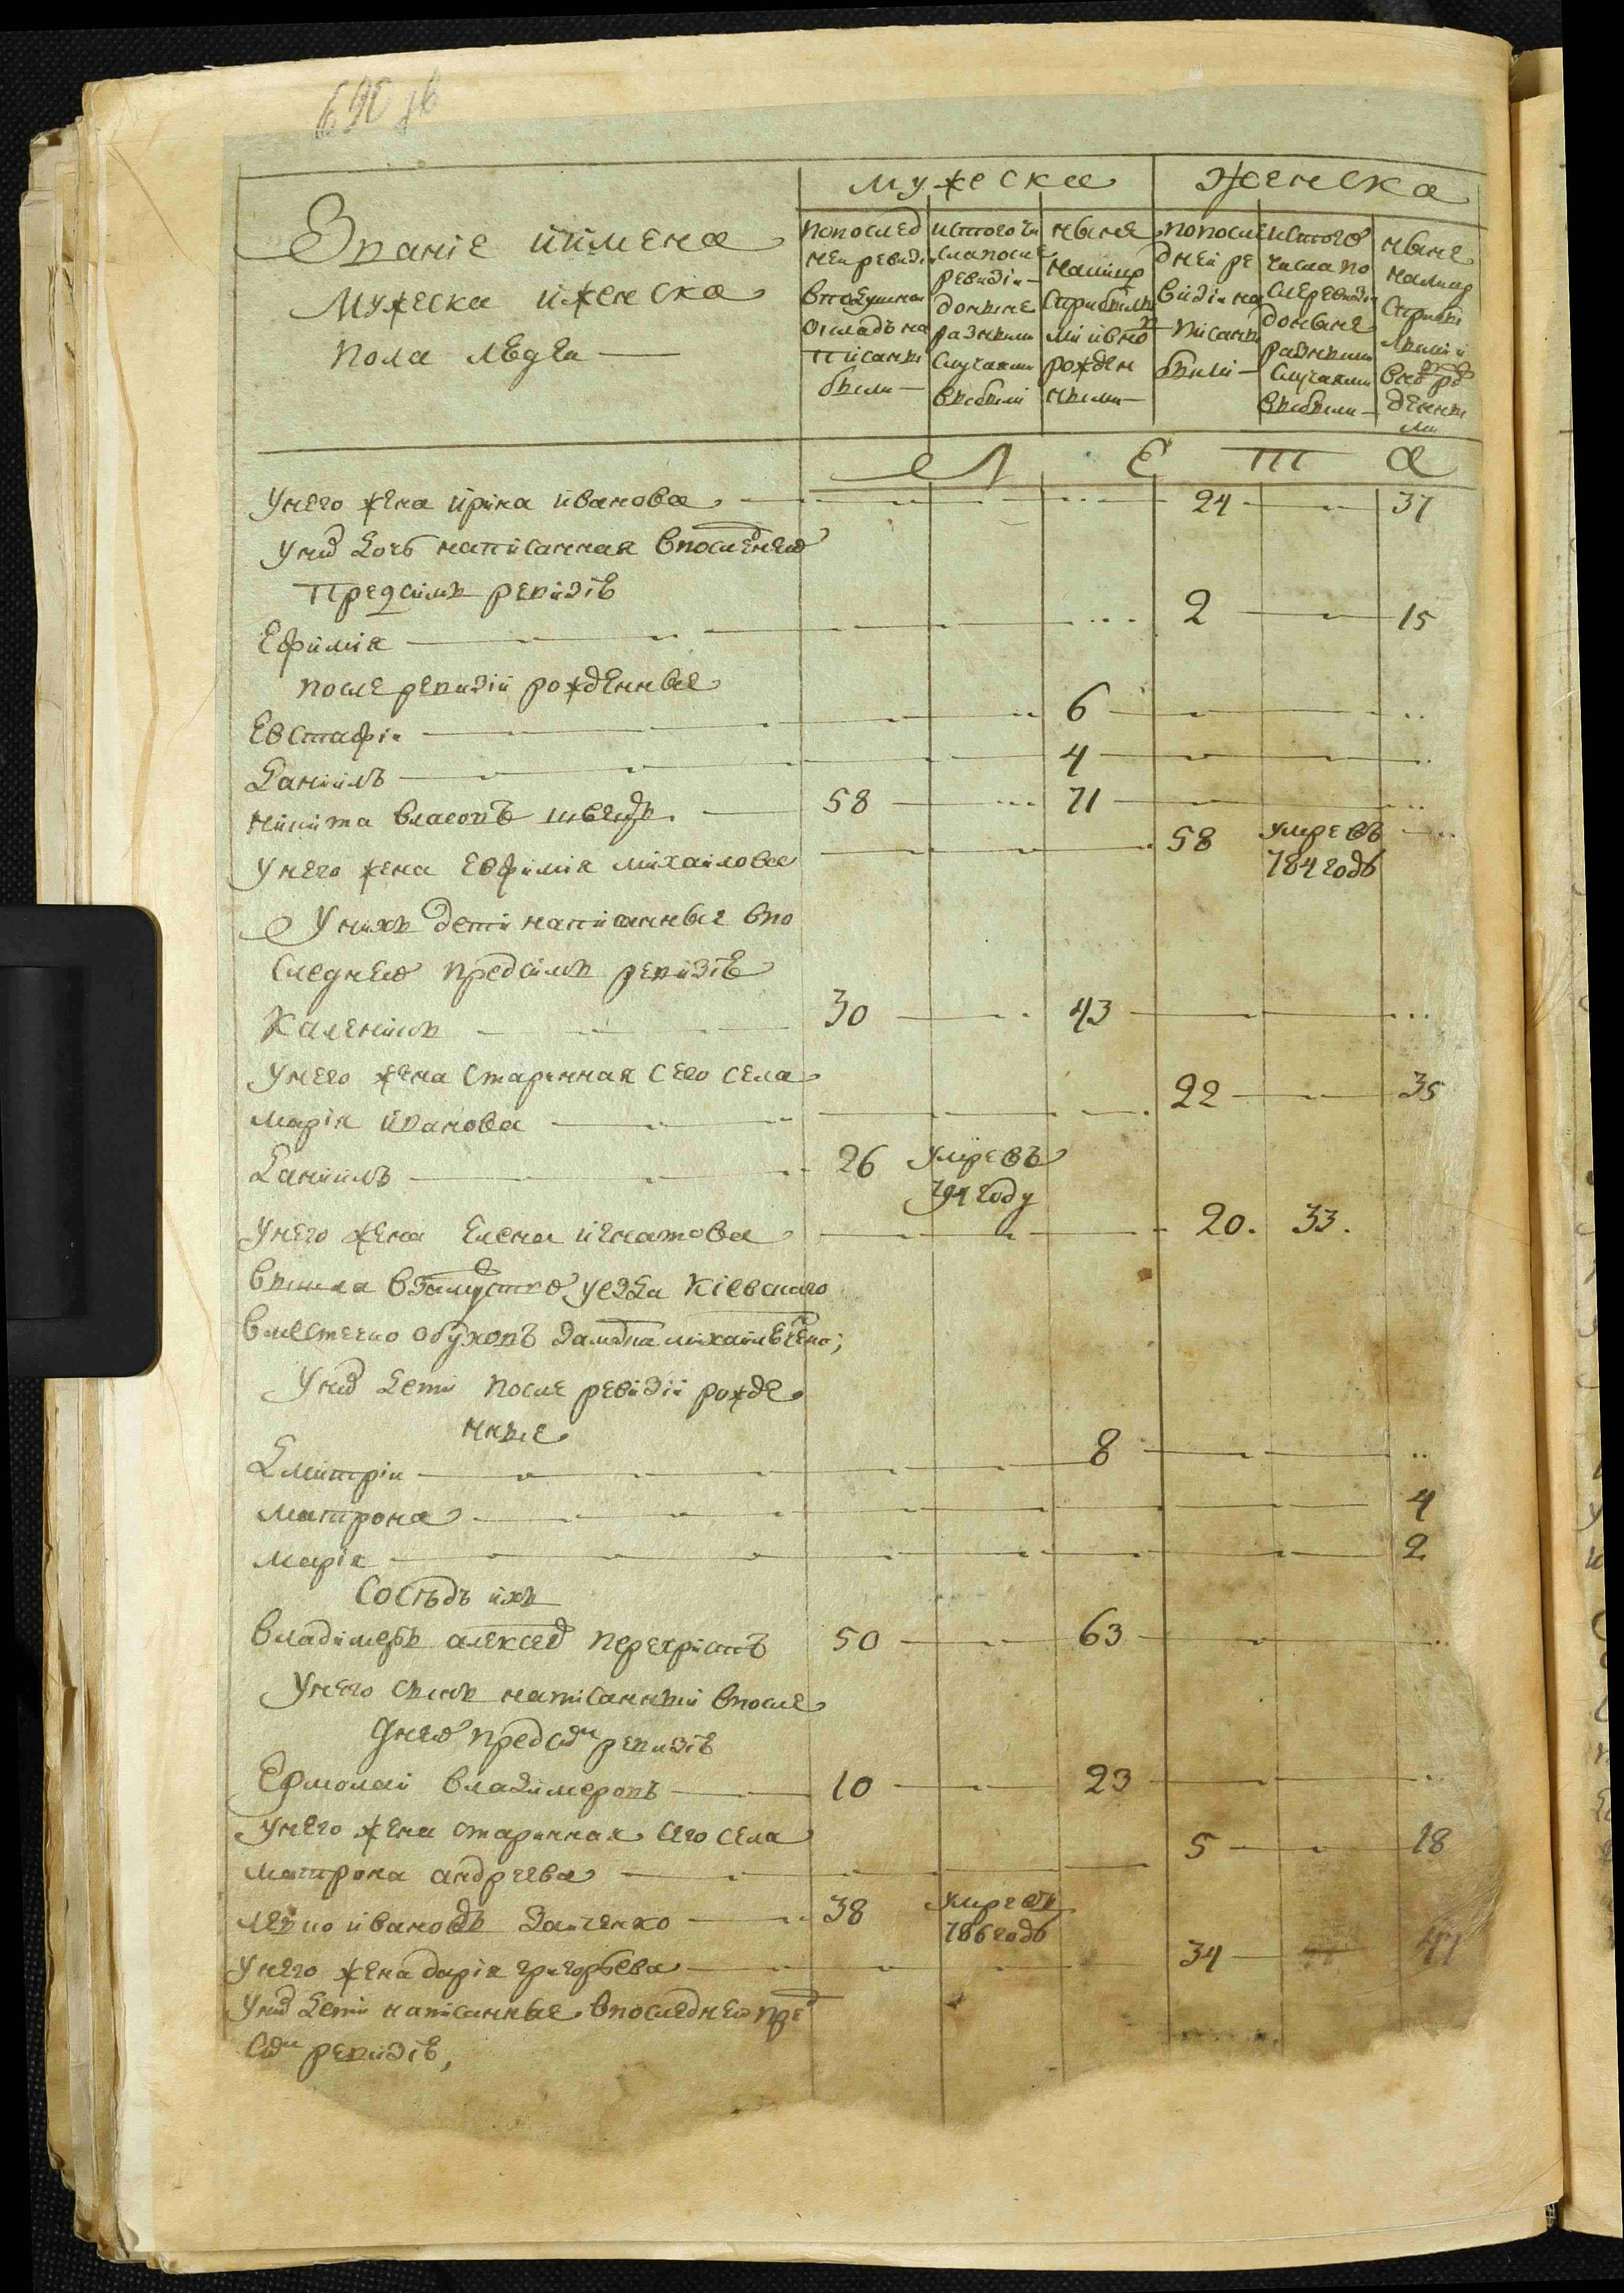 690 зв
мужеска женска
Звание и имена
мужеска и женска
пола людеи
попослед
неи ревизи
вподушнои
окладъ на
писаны
были
истого чи
сла после
ревизи
доныне
разными
случаями
выбыли
ныне
налицо
сприбылы
ми ивно
рожден
ными
попосле
днеи ре
визи на
писаны
были
истого
числа по
сле ревизи
доныне
разными
случаями
выбыли
ныне
налицо
сприбы
лыми и
вно рож
денны
ми
Л Е Т А
Унего жена ирина иванова 24 37
Уних дочь написанная впоследнею
предсимъ ревизiю
Ефимiя 2 15
после ревизiи рожденные
Евстафiи 6
Данiилъ 4
Никита власовъ шведъ 58 71
Унего жена Евфимiя михаилова 58 умре въ
784 годѣ
Унихъ дети написанные впо
следнею предсимъ ревизiю
Каленикъ 30 43
Унего жена старинная сего села
марiя иванова 22 35
Данiилъ 26 умре въ
794 году
Унего жена Елена игнатова 20. 33.
вышла взамуство уезда Кiевского
вместечко обуховъ
Уних дети после ревизiи рожде
нные
Дмитрiи 8
матрона 4
марiя 2
Сосѣдъ ихъ
владимеръ алексеев перехристъ 50 63
Унего сынъ написанныи впосле
днею предсим ревизiю
Ермолаи владимеровъ 10 23
Унего жена старинная сего села
матрона андреева 5 18
левко ивановъ заиченко 38 умре въ
786 годѣ
Унего жена дарiя григорьева 34 47
Уних дети написанные впоследнею пред
сим ревизiю,